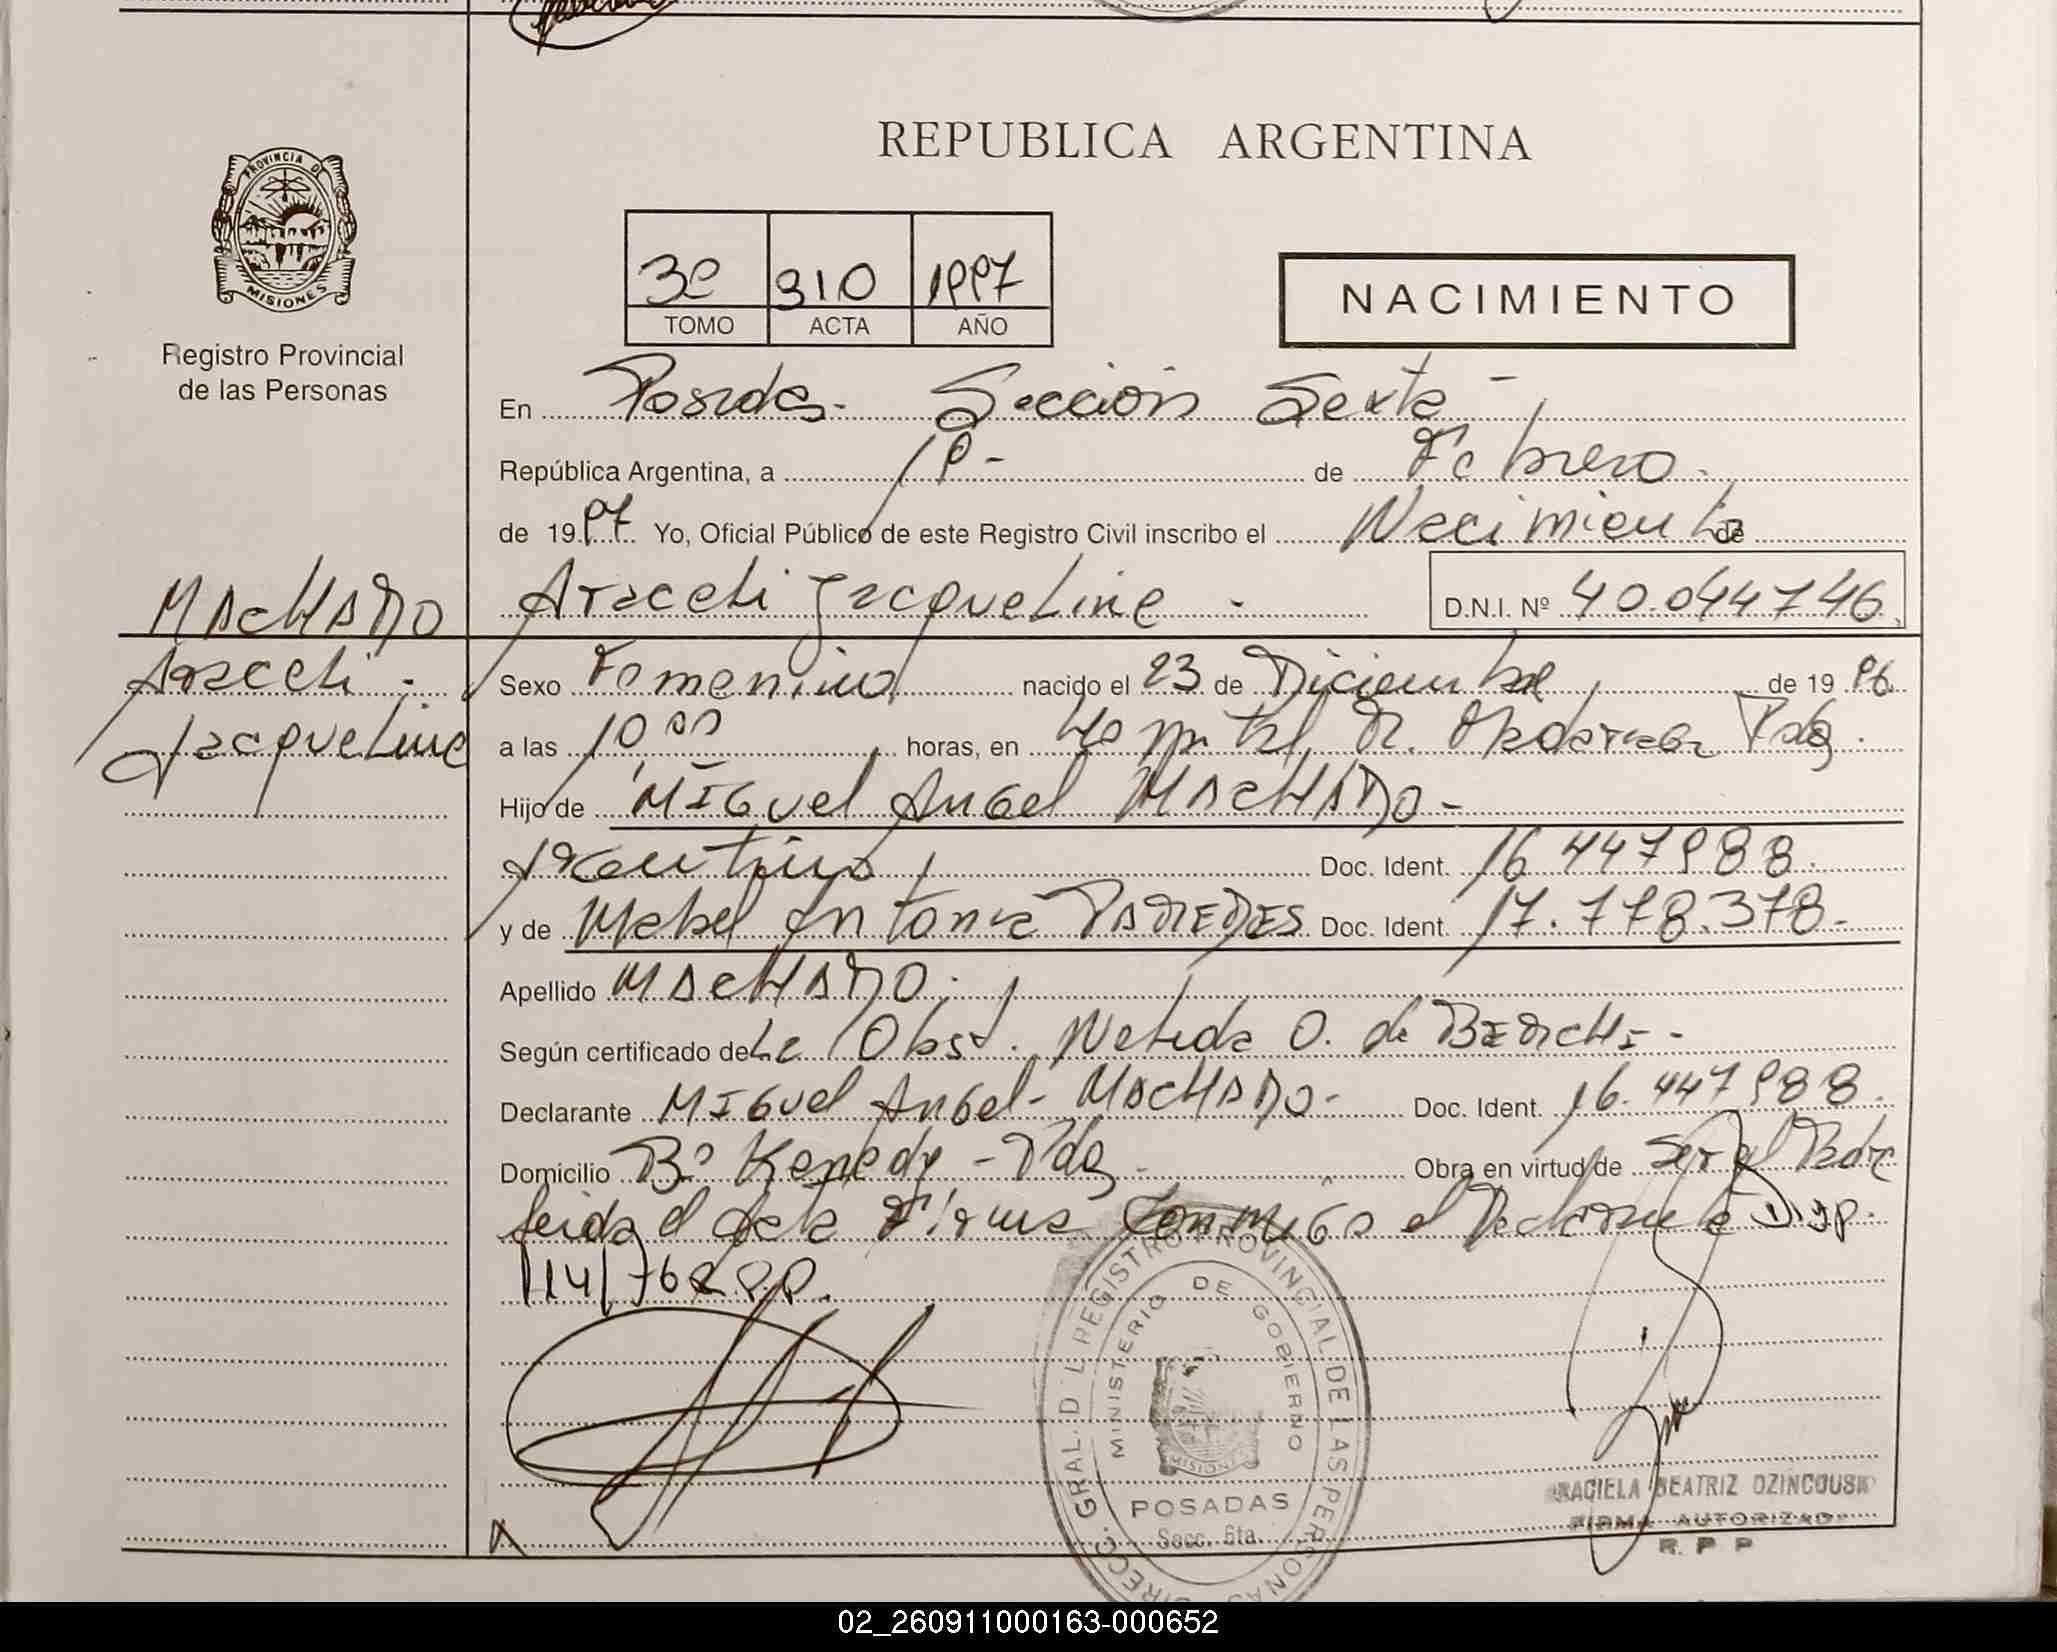 REPUBLICA ARGENTINA
PROVINCIA DE
MISIONES
Registro Provincial
de las Personas
3º 310 1997
TOMO ACTA AÑO
NACIMIENTO
En Posadas- Sección Sexta -
República Argentina, a 19- de Febrero.
de 1997 Yo, Oficial Público de este Registro Civil inscribo el Nacimiento de
MACHADO
Araceli Jacqueline - D.N.I. Nº 40.044746
Araceli
Jacqueline
Sexo Femenino nacido el 23 de Diciembre de 1996
a las 10 00 horas, en Hospital R. Madariaga Pdas.
Hijo de Miguel Angel MACHADO-
Argentino Doc. Ident. 16.447988.
y de Mabel Antonia PAREDES Doc. Ident. 17.778.378-
Apellido MACHADO.
Según certificado de La Obst. Nelida O. de
Declarante Miguel Angel- MACHADO- Doc. Ident. 16.447988.
Domicilio Bº Kenedy - Pdas. Obra en virtud de Ser el Padre
leida el Acta Firma Conmigo el Declarante Disp.
114/76
DIRECC. GRAL. D L REGISTRO PROVINCIAL DE LAS PERSONAS
MINISTERIO DE GOBIERNO
MISIONES
POSADAS
Secc. 6ta.
GRACIELA BEATRIZ DZINCOUSK
FIRMA AUTORIZAD
R. P P
02_260911000163-000652